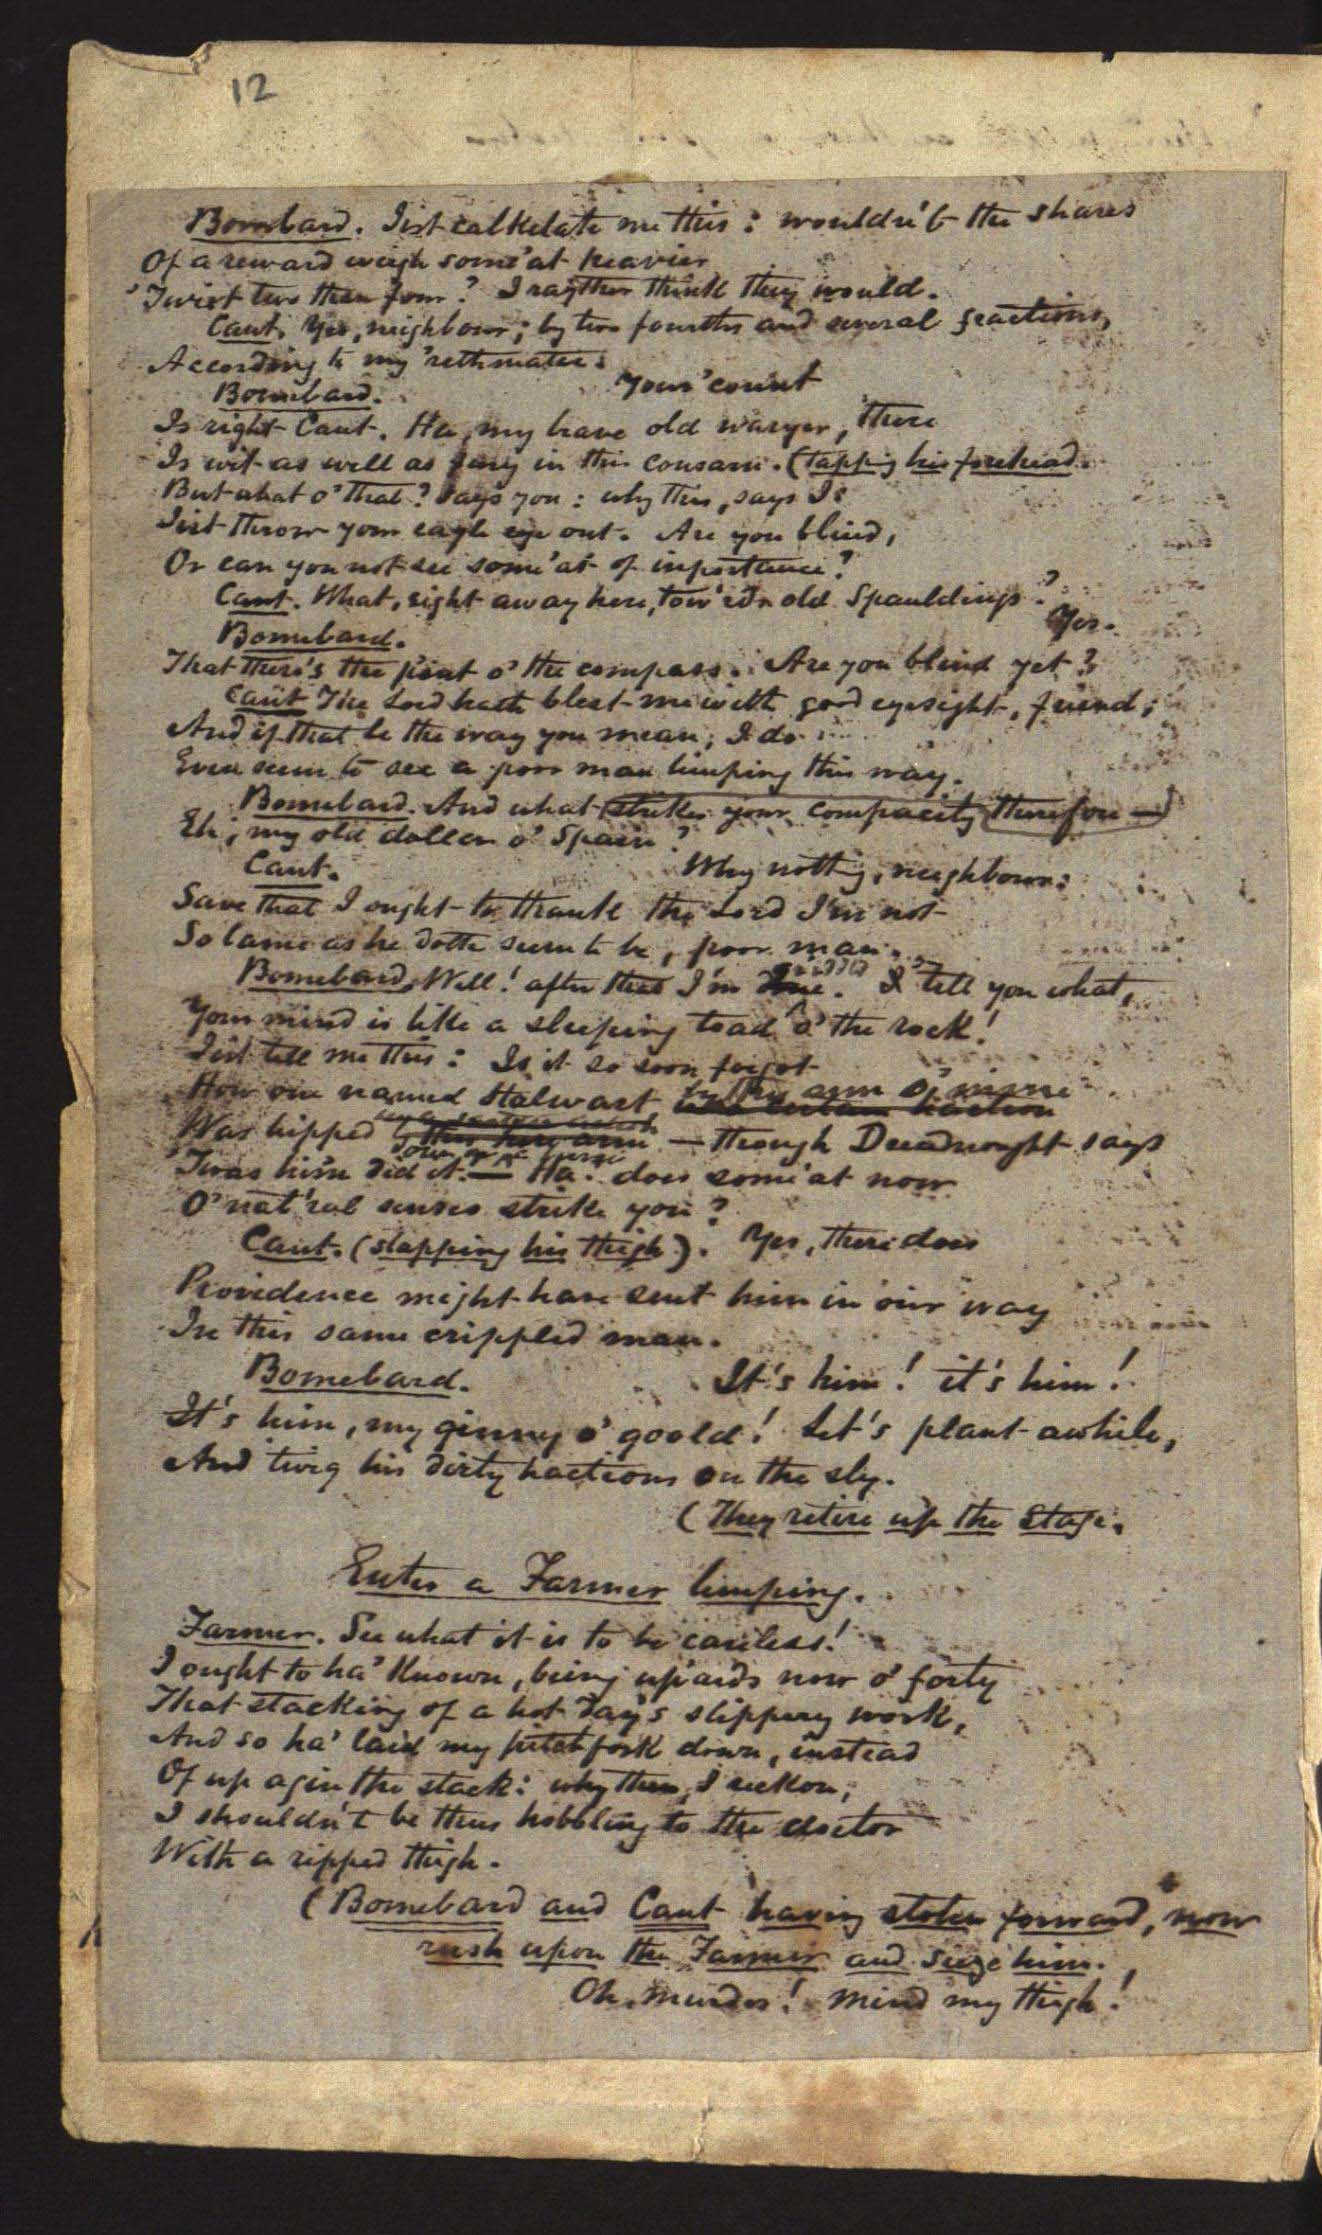 12
Bomebard. Jist calkelate me this: wouldn't the shares
Of a reward weigh some'at heavier
'Twixt two than four? I rayther think they would.
Cant. Yes, neighbour; by two fourths and several fractions,
According to my 'rethmatic.
Bomebard. Your 'count
Is right Cant. Ha, my brave old waryer, there
Is wit as well as in this consarn. (tapping his forehead.
But what o' that? says you: why this, says I:
Jist throw your eagle eye out. Are you blind,
Or can you not see some'at of importance?
Cant. What, right away here, tow'rds old Spauldings?
Bomebard. Yes.
That there's the pint o' the compass. Are you blind yet?
Cant The Lord hath blest me with good eyesight, friend;
And if that be the way you mean, I do
Even seem to see a poor man limping this way.
Bomebard. And what strikes your compacity therefore —
Eh, my old doller o' Spain?
Cant. Why nothing, neighbour:
Save that I ought to thank the Lord I'm not
So lame as he doth seem to be, poor man.
Bomebard. Well! after that I'm . I tell you what,
Your mind is like a sleeping toad o' the rock!
Jist tell me this: Is it so soon forgot
How one named Stalwart by this arm o' mine
Was hipped — though Dreadnought says
'Twas him did it. — Ha. does some'at now
O' nat'ral senses strike you?
Cant. (slapping his thigh). Yes, there does
Providence might have sent him in our way
In this same crippled man.
Bomebard. It's him! it's him!
It's him, my ginny o' goold! Let's plant awhile,
And twig his dirty hactions on the sly.
(They retire up the Stage.
Enter a Farmer limping.
Farmer. See what it is to be careless!
I ought to ha' known, being up'ards now o' forty
That stacking of a hot day's slippery work,
And so ha' laid my pitchfork down, instead
Of up agin the stack: why then, I reckon,
I shouldn't be thus hobbling to the doctor
With a ripped thigh.
(Bomebard and Cant having stolen forward, now
rush upon the Farmer and seize him.
Oh, murder! mind my thigh!